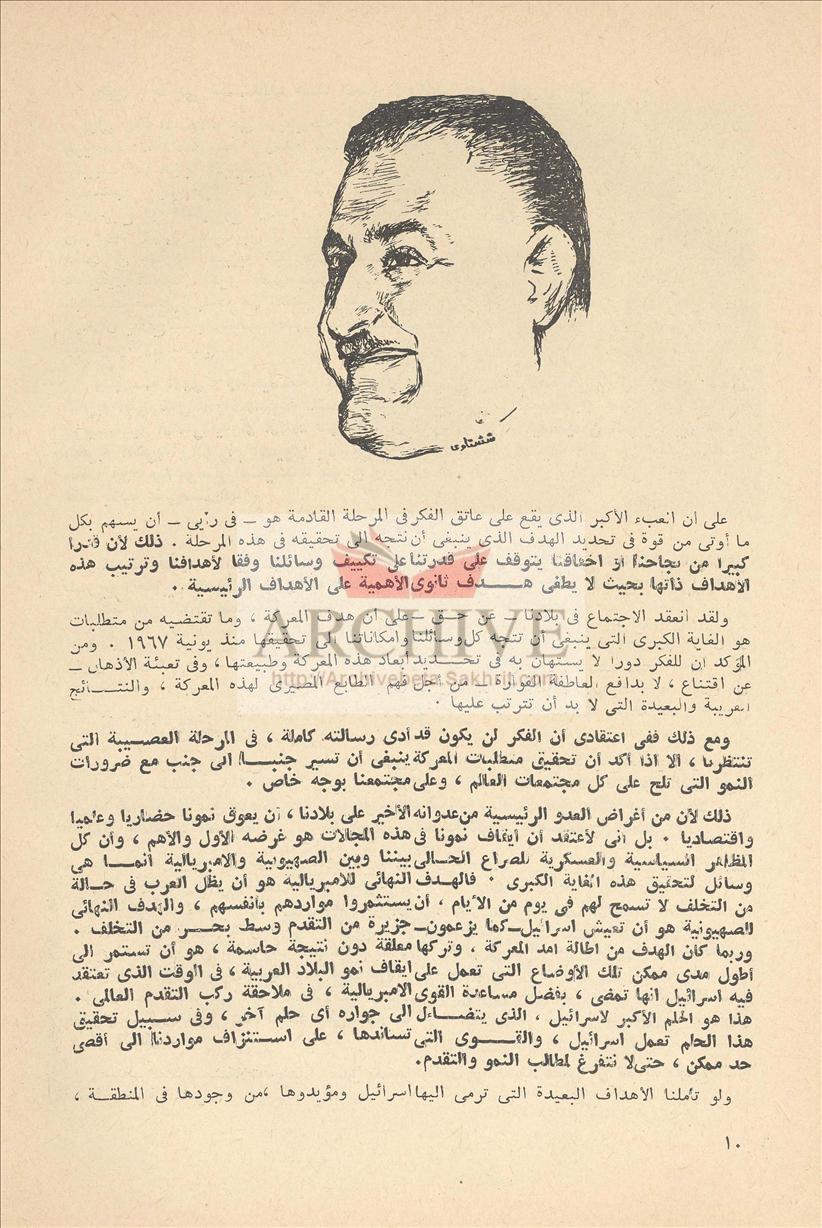 ششتاوى
على أن العبء الأكبر الذى يقع على عاتق الفكر فى المرحلة القادمة هو – فى رأيى – أن يسهم بكل
ما أوتى من قوة فى تحديد الهدف الذى ينبغى أن نتجه الى تحقيقه فى هذه المرحلة . ذلك لأن قدرا
كبيرا من نجاحنا أو اخفاقنا يتوقف على قدرتنا على تكييف وسائلنا وفقا لأهدافنا وترتيب هذه
الأهداف ذاتها بحيث لا يطغى هـــدف ثانوى الأهمية على الأهداف الرئيسية .
ولقد انعقد الاجتماع فى بلادنا – عن حق – على أن هدف المعركة ، وما تقتضيه من متطلبات
هو الغاية الكبرى التى ينبغى أن تتجه كل وسائلنا وامكاناتنا الى تحقيقها منذ يونية ١٩٦٧ . ومن
المؤكد ان للفكر دورا لا يستهان به فى تحــديد أبعاد هذه المعركة وطبيعتها ، وفى تعبئة الأذهان –
عن اقتناع ، لا بدافع العاطفة الفوارة – من أجل فهم الطابع المصيرى لهذه المعركة ، والنتــائج
القريبة والبعيدة التى لا بد أن تترتب عليها .
ARCHIVE
http://Archivebeta.Sakhrit.com
ومع ذلك ففى اعتقادى أن الفكر لن يكون قد أدى رسالته كاملة ، فى المرحلة العصــيبة التى
تنتظرنا ، الا اذا أكد أن تحقيق متطلبات المعركة ينبغى أن تسير جنبــا الى جنب مع ضرورات
النمو التى تلح على كل مجتمعات العالم ، وعلى مجتمعنا بوجه خاص .
ذلك لأن من أغراض العدو الرئيسية من عدوانه الأخير على بلادنا ، أن يعوق نمونا حضاريا وعلميا
واقتصاديا . بل انى لأعتقد أن ايقاف نمونا فى هذه المجالات هو غرضه الأول والأهم ، وأن كل
المظاهر السياسية والعسكرية للصراع الحــالى بيننا وبين الصهيونية والامبريالية انمــا هى
وسائل لتحقيق هذه الغاية الكبرى . فالهــدف النهائى للامبرياليه هو أن يظل العرب فى حــالة
من التخلف لا تسمح لهم فى يوم من الأيام ، أن يستثمروا مواردهم بأنفسهم ، والهدف النهائى
للصهيونية هو أن تعيش اسرائيل – كما يزعمون – جزيرة من التقدم وسط بحــر من التخلف .
وربما كان الهدف من اطالة امد المعركة ، وتركها معلقة دون نتيجة حاسمة ، هو أن تستمر الى
أطول مدى ممكن تلك الأوضاع التى تعمل على ايقاف نمو البلاد العربية ، فى الوقت الذى تعتقد
فيه اسرائيل انها تمضى ، بفضل مساعدة القوى الامبريالية ، فى ملاحقة ركب التقدم العالمى .
هذا هو الحلم الأكبر لاسرائيل ، الذى يتضــاءل الى جواره أى حلم آخر ، وفى ســبيل تحقيق
هذا الحلم تعمل اسرائيل ، والقــوى التى تساندها ، على اســتنزاف مواردنا الى أقصى
حد ممكن ، حتى لا نتفرغ لمطالب النمو والتقدم.
ولو تأملنا الأهداف البعيدة التى ترمى اليها اسرائيل ومؤيدوها ، من وجودها فى المنطقــة ،
١٠